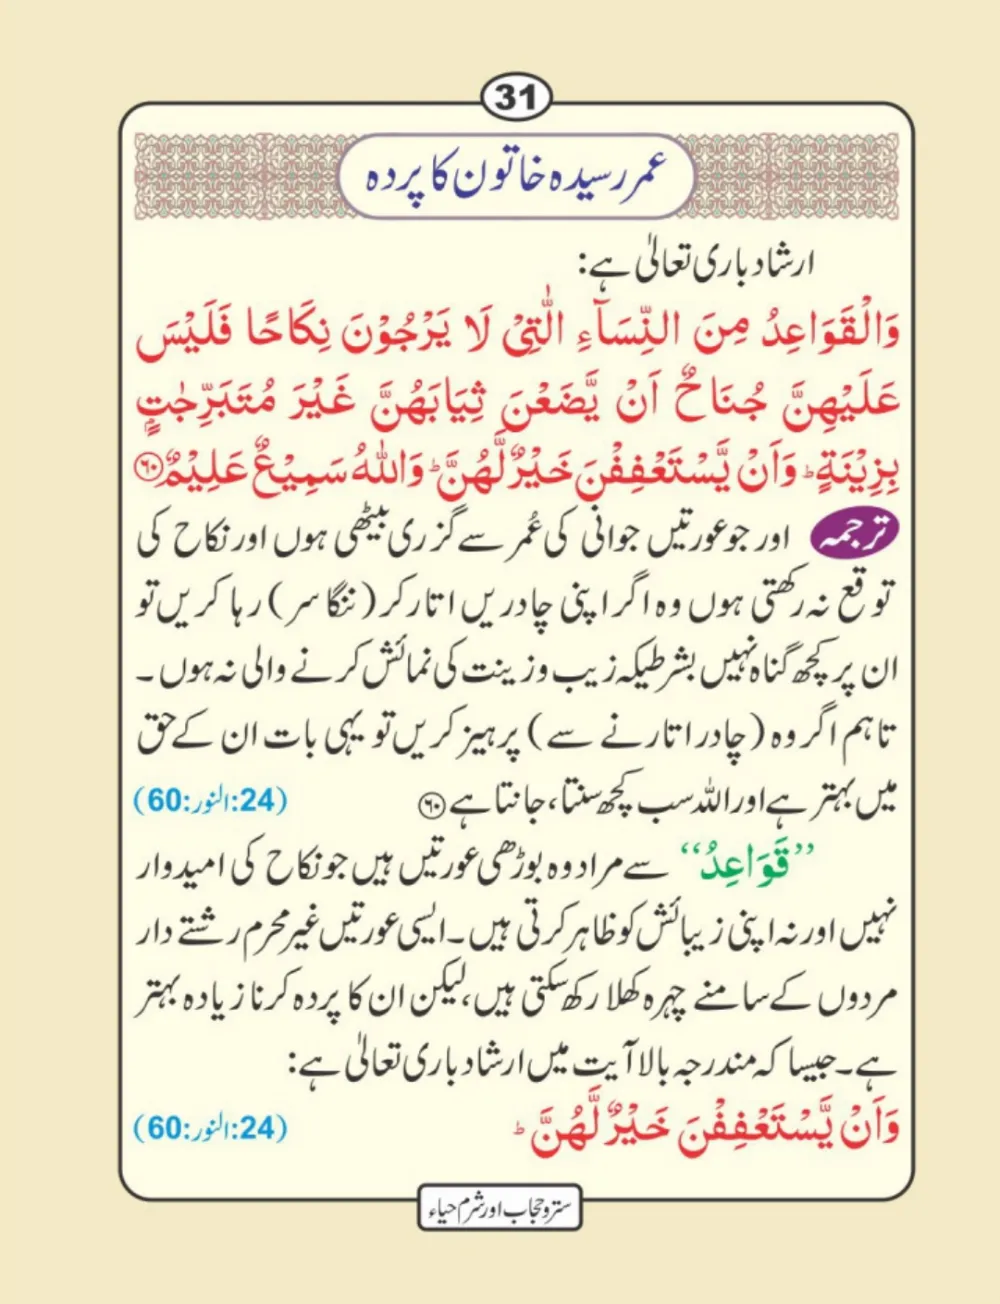 31
عمر رسیدہ خاتون کا پردہ
ارشاد باری تعالیٰ ہے:
وَالْقَوَاعِدُ مِنَ النِّسَآءِ الّٰتِیْ لَا یَرْجُوْنَ نِکَاحًا فَلَیْسَ
عَلَیْهِنَّ جُنَاحٌ اَنْ یَّضَعْنَ ثِیَابَهُنَّ غَیْرَ مُتَبَرِّجٰتٍۭ
بِزِیْنَةٍ ؕ وَاَنْ یَّسْتَعْفِفْنَ خَیْرٌ لَّهُنَّ ؕ وَاللّٰهُ سَمِیْعٌ عَلِیْمٌ ۶۰
ترجمہ اور جو عورتیں جوانی کی عُمر سے گزری بیٹھی ہوں اور نکاح کی
توقع نہ رکھتی ہوں وہ اگر اپنی چادریں اتار کر (ننگا سر) رہا کریں تو
ان پر کچھ گناہ نہیں بشرطیکہ زیب و زینت کی نمائش کرنے والی نہ ہوں ۔
تاہم اگر وہ (چادر اتارنے سے) پرہیز کریں تو یہی بات ان کے حق
میں بہتر ہے اور اللہ سب کچھ سنتا، جانتا ہے ۶۰ (24:النور:60)
”قَوَاعِدُ“ سے مراد وہ بوڑھی عورتیں ہیں جو نکاح کی امیدوار
نہیں اور نہ اپنی زیبائش کو ظاہر کرتی ہیں۔ ایسی عورتیں غیر محرم رشتے دار
مردوں کے سامنے چہرہ کھلا رکھ سکتی ہیں، لیکن ان کا پردہ کرنا زیادہ بہتر
ہے۔ جیسا کہ مندرجہ بالا آیت میں ارشاد باری تعالیٰ ہے:
وَاَنْ یَّسْتَعْفِفْنَ خَیْرٌ لَّهُنَّ ؕ (24:النور:60)
ستر و حجاب اور شرم حیاء